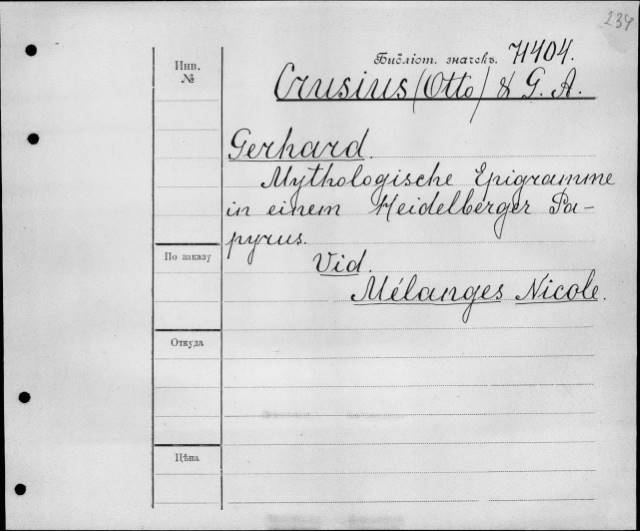 234
Библіот. значекъ. 71404.
Инв.
№
Crusius (Otto) & G. A.
Gerhard.
Mythologische Epigramme
in einem Heidelberger Pa-
pyrus.
По заказу
Vid.
Mélanges Nicole.
Откуда
Цѣна